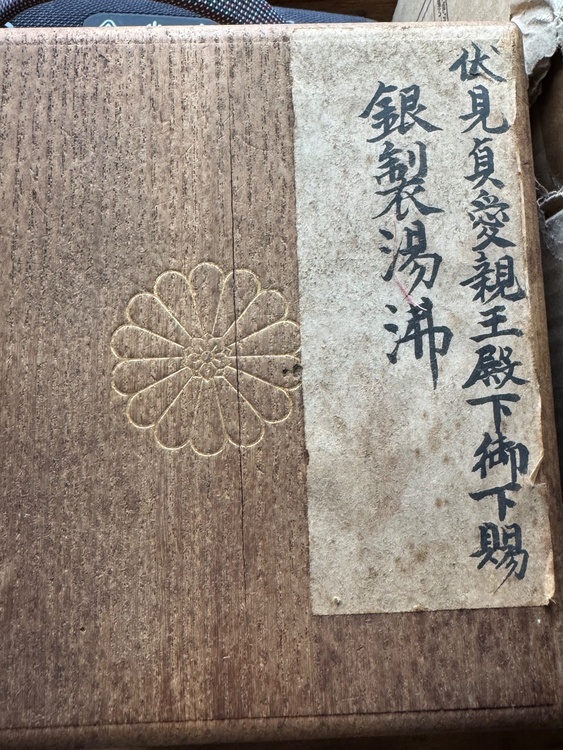 伏見貞愛親王殿下御下賜
銀製湯沸